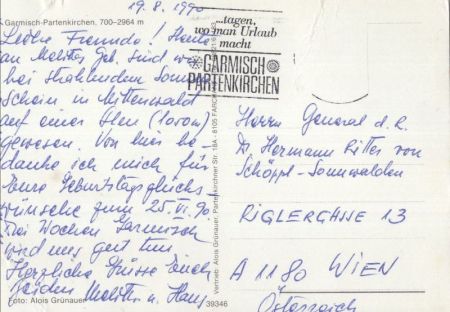 19.8.1990
Garmisch-Partenkirchen, 700–2964 m
Liebe Freunde! Heute
an Geb. sind wir
bei strahlendem Sonnen
Schein in Mittenwald
auf einer Alm (1000m)
gewesen. Von hier be-
danke ich mich für
Eure Geburtstagsglücks-
wünsche zum 25.VI.90.
Drei Wochen Garmisch
wird uns gut tun
Herzliche Grüsse Euch
beiden u. Hans
Foto: Alois Grünauer
Vertrieb: Alois Grünauer, Partenkirchner Str. 18A - 8105 FARCH
39346
...tagen,
wo man Urlaub
macht
GARMISCH
PARTENKIRCHEN
Herrn General d.R.
Dr. Hermann Ritter von
Schöppl-Sonnwalden
RIGLERGASSE 13
A 1180 WIEN
Österreich